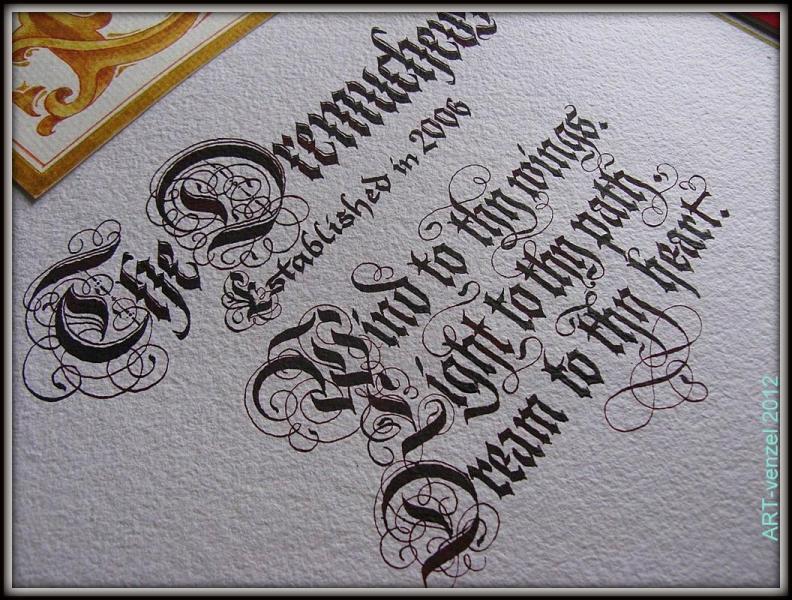 The Dremuchews
Established in 2006
Wind to thy wings.
Light to thy path.
Dream to thy heart.
ART-venzel 2012